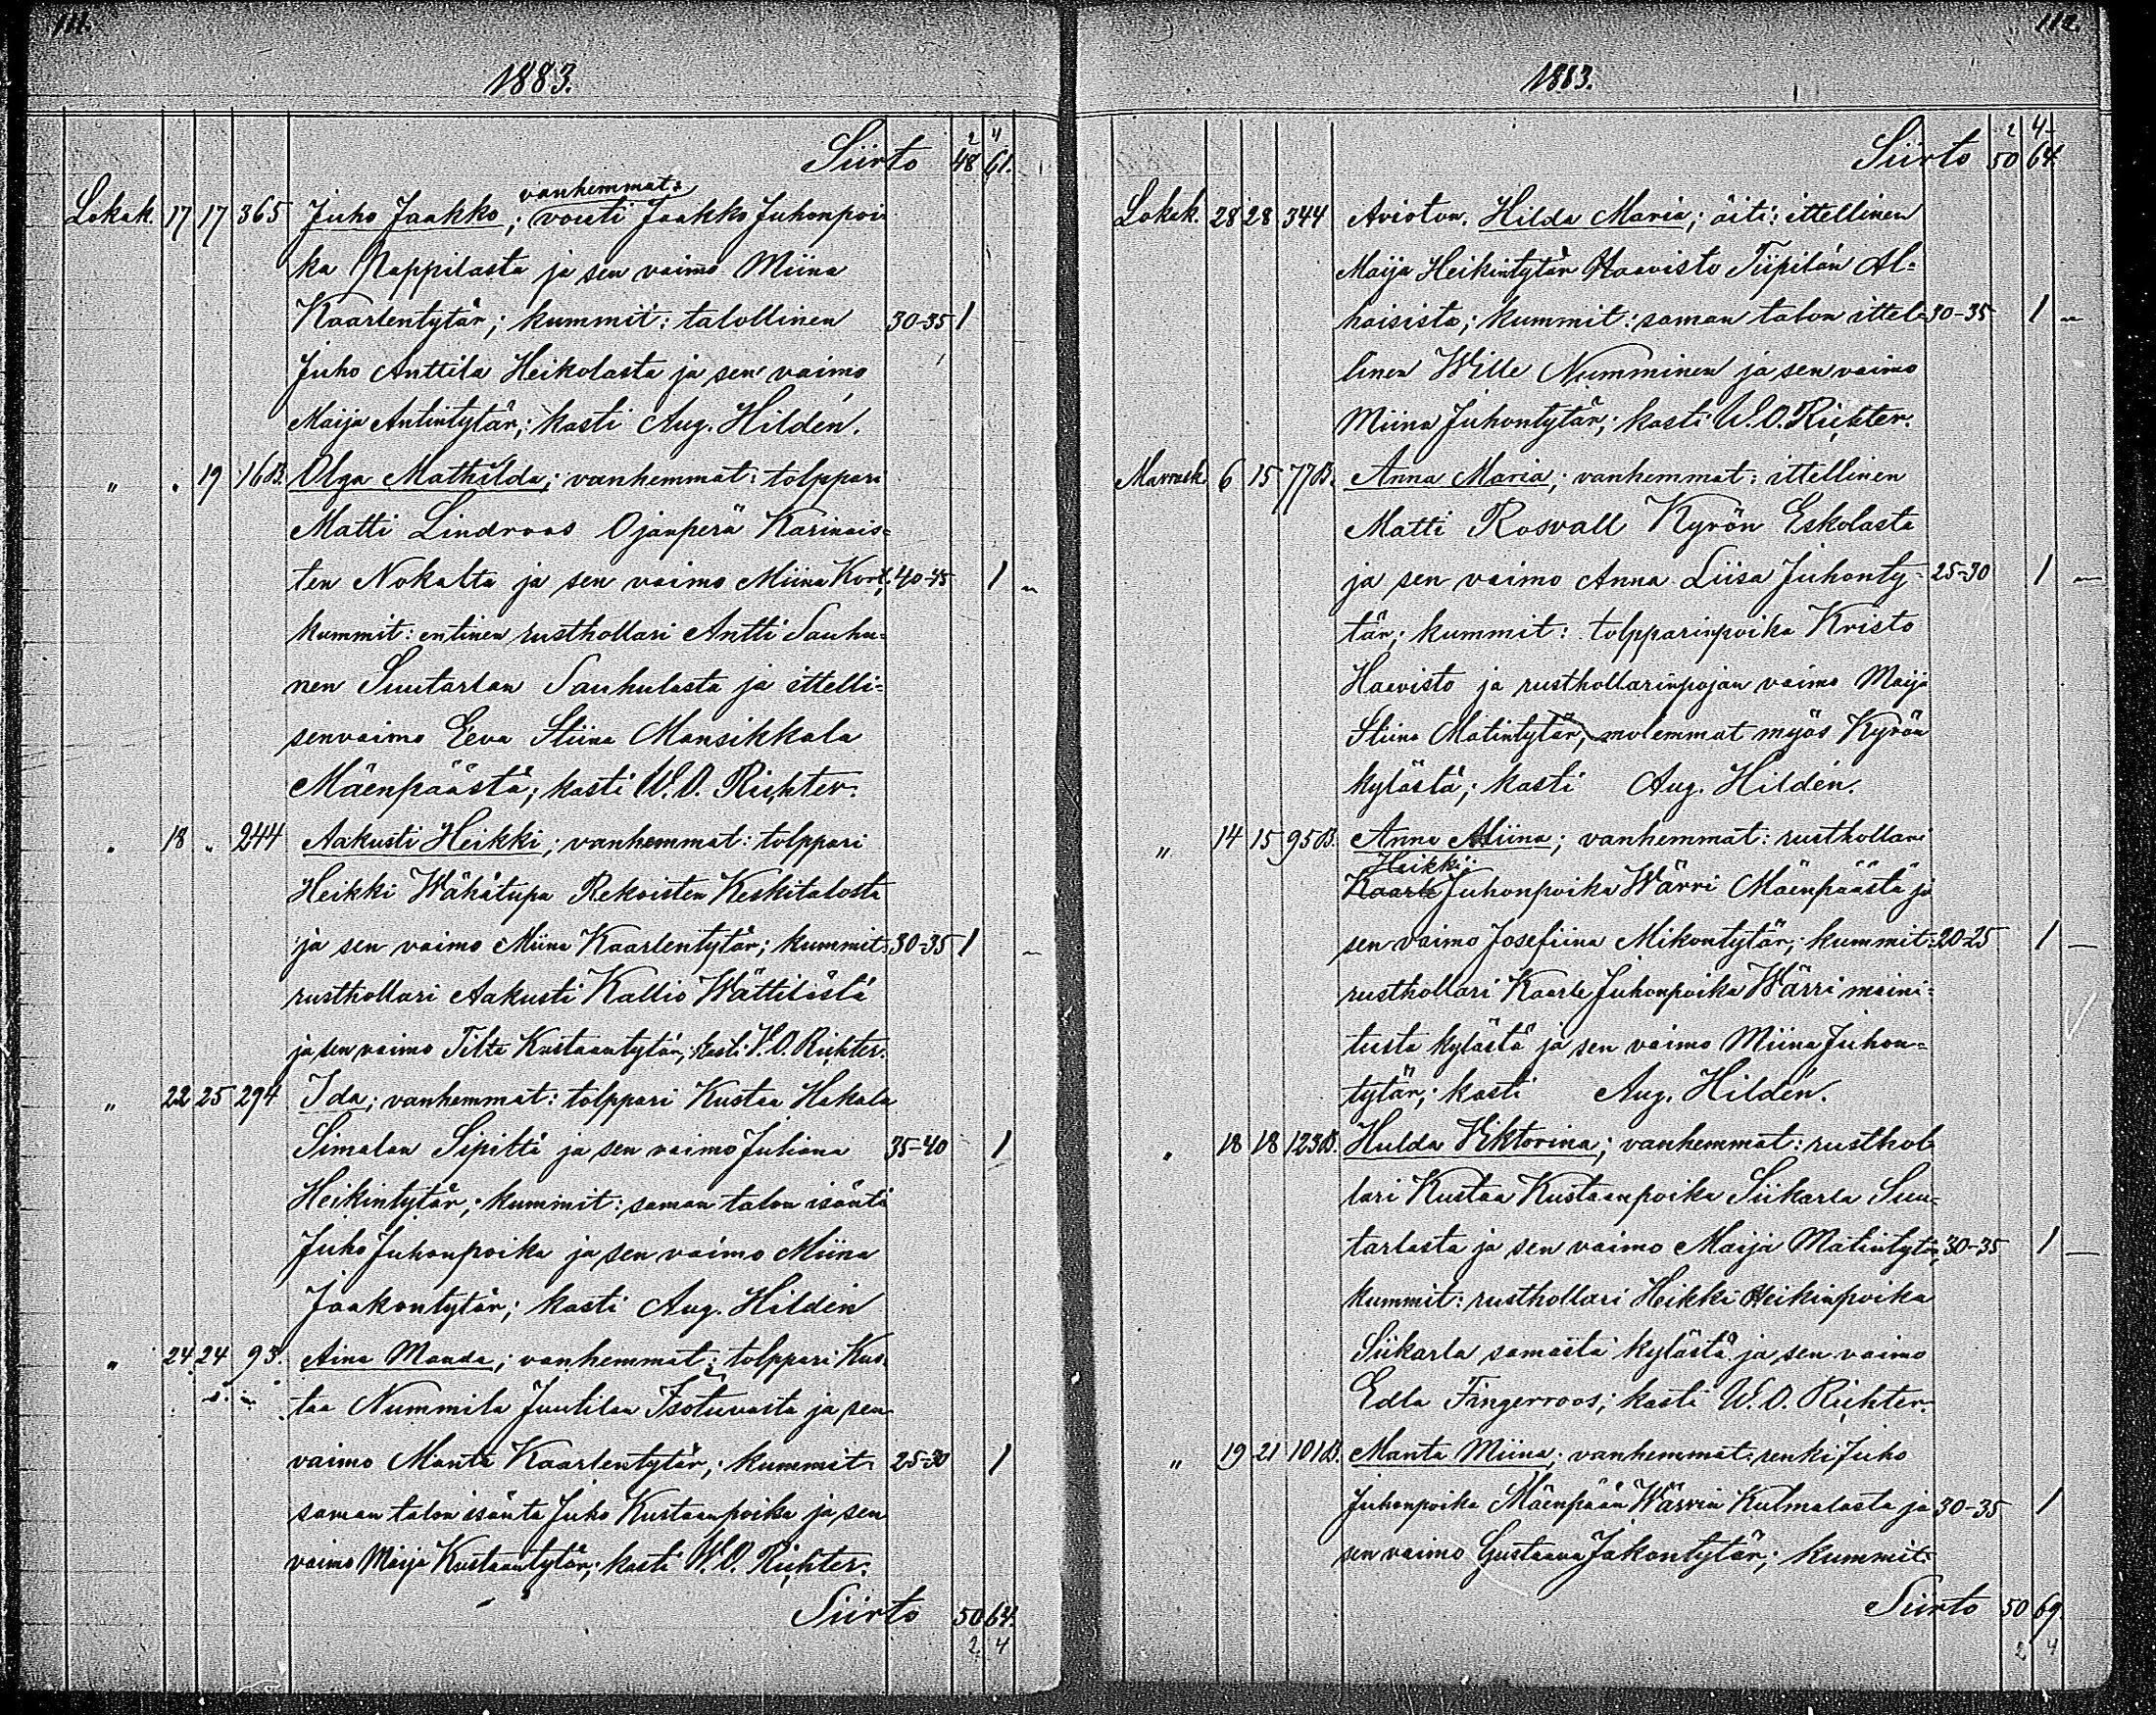 111.
1883.
Siirto 48 61.
vanhemmat:
Lokak. 17 17 365 Juho Jaakko; vouti Jaakko Juhonpoi-
ka Nappilasta ja sen vaimo Miina
Kaarlentytär; kummit: talollinen 30-35 1
Juho Anttila Heikolasta ja sen vaimo
Maija Antintytär; kasti Aug. Hildén.
" " 19 16B. Olga Mathilda; vanhemmat: tolppari
Matti Lindroos Ojanperä Karinais=
ten Nokalta ja sen vaimo Miina Kort; 40-45 1
kummit: entinen rusthollari Antti Sauhu=
nen Suutarlan Sauhulasta ja ittelli=
senvaimo Eeva Stiina Mansikkala
Mäenpäästä; kasti W. O. Richter.
" 18 " 244 Aakusti Heikki; vanhemmat: tolppari
Heikki Wähätupa Rekoisten Keskitalosta
ja sen vaimo Miina Kaarlentytär; kummit: 30-35 1
rusthollari Aakusti Kallio Wättilästä
ja sen vaimo Tilta Kustaantytär; kasti W. O. Richter.
" 22 25 294 Ida; vanhemmat: tolppari Kustaa Hakala
Simalan Sipiltä ja sen vaimo Juliana 35-40 1
Heikintytär; kummit: saman talon isäntä
Juho Juhonpoika ja sen vaimo Miina
Jaakontytär; kasti Aug. Hildén
" 24 24 93. Aina Manda; vanhemmat: tolppari Kus=
taa Nummila Juutilan Isotuvasta ja sen
vaimo Manta Kaarlentytär; kummit: 25-30 1
saman talon isäntä Juho Kustaanpoika ja sen
vaimo Maija Kustaantytär; kasti W. O. Richter.
Siirto 50 64.
2 4
112.
1883.
2 4
Siirto 50 64.
Lokak. 28 28 344 Avioton. Hilda Maria; äiti: ittellinen
Maija Heikintytär Haavisto Tiipilän Al=
haisista; kummit: saman talon ittel= 30-35 1
linen Wille Numminen ja sen vaimo
Miina Juhontytär; kasti W. O. Richter.
Marrask. 6 15 77B. Anna Maria; vanhemmat: ittellinen
Matti Rosvall Kyrön Eskolasta
ja sen vaimo Anna Liisa Juhonty= 25-30 1
tär; kummit: tolpparinpoika Kristo
Haavisto ja rusthollarinpojan vaimo Maija
Stiina Matintytär, molemmat myös Kyrön
kylästä; kasti Aug. Hildén.
" 14 15 95B. Anna Miina; vanhemmat: rusthollari
Heikki
Kaarle Juhonpoika Wärri Mäenpäästä ja
sen vaimo Josefiina Mikontytär; kummit: 20-25 1
rusthollari Kaarle Juhonpoika Wärri maini=
tusta kylästä ja sen vaimo Miina Juhon=
tytär; kasti Aug. Hildén.
" 18 18 123B. Hulda Viktorina; vanhemmat: rusthol=
lari Kustaa Kustaanpoika Siikarla Suu=
tarlasta ja sen vaimo Maija Matintytär; 30-35 1
kummit: rusthollari Heikki Heikinpoika
Siikarla samasta kylästä ja sen vaimo
Edla Fingerroos; kasti W. O. Richter.
" 19 21 101B. Manta Miina; vanhemmat: renki Juho
Juhonpoika Mäenpään Wärrin Kulmalasta ja 30-35 1
sen vaimo Gustaava Jakontytär; kummit:
Siirto 50 69.
2 4